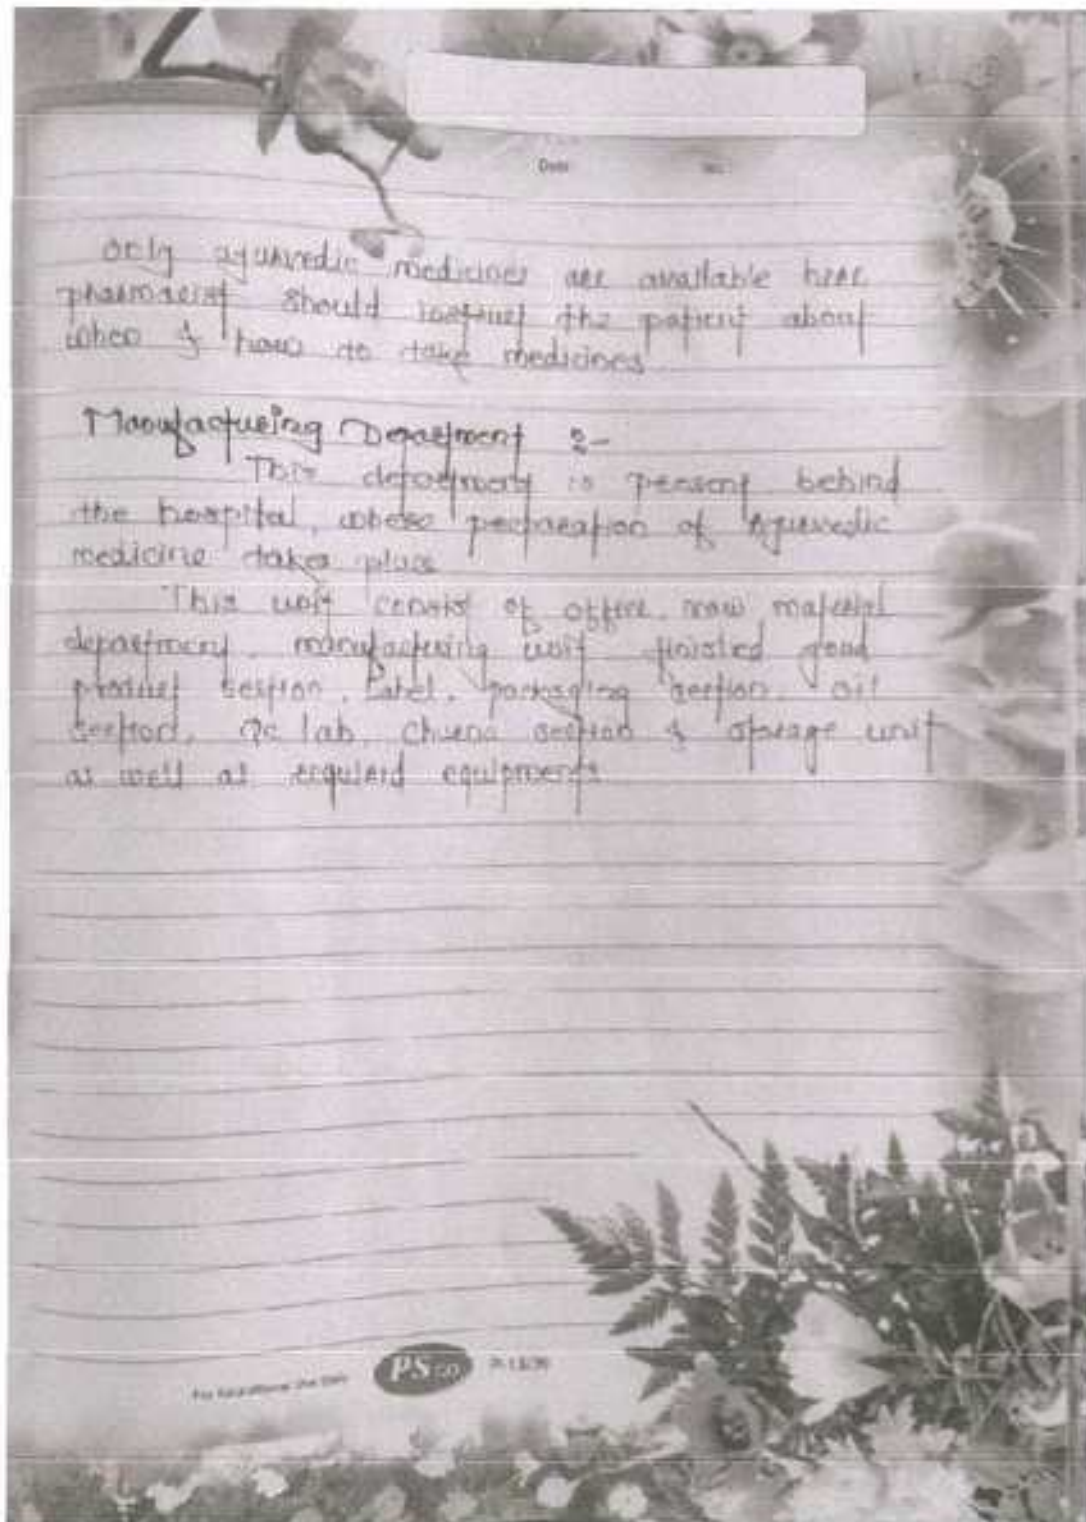 Date
only ayurvedic medicines are available here
pharmacist should instruct the patient about
when & how to take medicines
Manufacturing Department :-
This department is persent behind
the hospital, where preparation of Ayurvedic
medicine takes place
This unit consist of office, raw material
department, manufacturing unit finisted good
product section, Label, packaging section, oil
section, Qc lab, Churna section & storage unit
as well as required equipments
For Educational Use Only PS